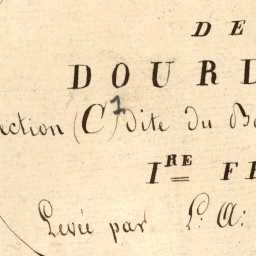 DE
DOURD
ction (C)1 dite du Bo
IRE FE
Levée par L. A: